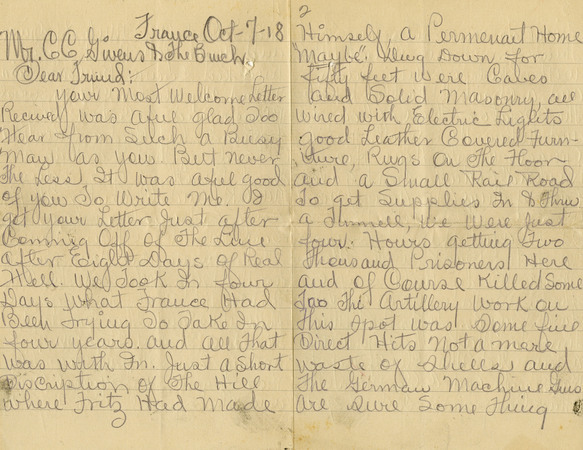 France Oct-7-18
Mr. C C Givens & The Bunch,
Dear Friend:
Your Most Welcome Letter
Recieved was afue glad Too
Hear from Such a Buisy
Man as you But never
The Less, It was afue good
of you To Write Me. I
got your Letter Just after
Coming Off of The Line
After Eight Days of Real
Hell. We Took In four
Days what France Had
Been Trying To Take In
four years. and all That
was with In. Just a Short
Discription of The Hill
where Fritz Had Made
2
Himself, a Permenant Home
"Maybe". Dug Down for
fifty feet were Caves
and Solid Masonry, all
wired with Electric Lights
good Leather Covered Furn-
iture, Rugs On The Floor
and a Small Rail Road
To get Supplies In & Thru
a Tunnell, We Were Just
four. Hours getting Two
Thousand Prisoners Here
and of Course Killed Some
Too The Artillery Work on
This Spot was Some fine
Direct Hits Not a mere
waste of Shells and
The German Machine Guns
are Sure Some Thing